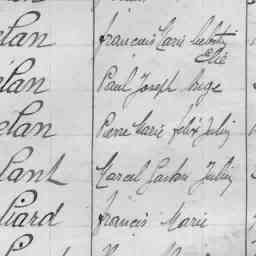 elan François Marie
Elie
elan Paul Joseph Ange
elan Pierre Marie félix Julien
lant Marcel Gaston Julien
liard Francis Marie